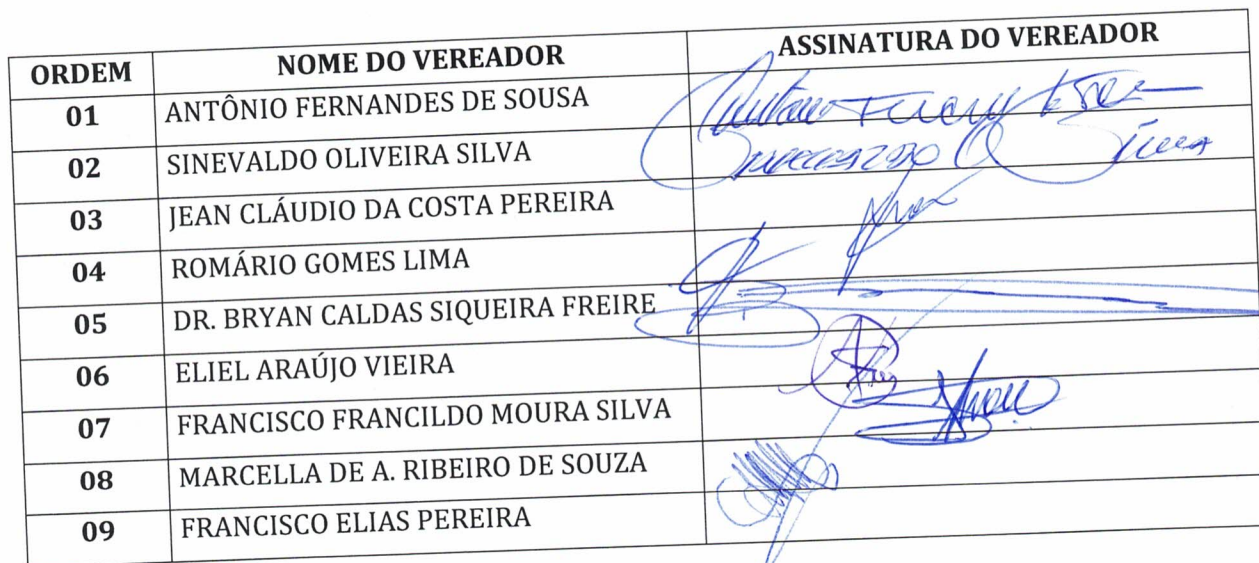 ORDEM NOME DO VEREADOR ASSINATURA DO VEREADOR
01 ANTÔNIO FERNANDES DE SOUSA
02 SINEVALDO OLIVEIRA SILVA
03 JEAN CLÁUDIO DA COSTA PEREIRA
04 ROMÁRIO GOMES LIMA
05 DR. BRYAN CALDAS SIQUEIRA FREIRE
06 ELIEL ARAÚJO VIEIRA
07 FRANCISCO FRANCILDO MOURA SILVA
08 MARCELLA DE A. RIBEIRO DE SOUZA
09 FRANCISCO ELIAS PEREIRA